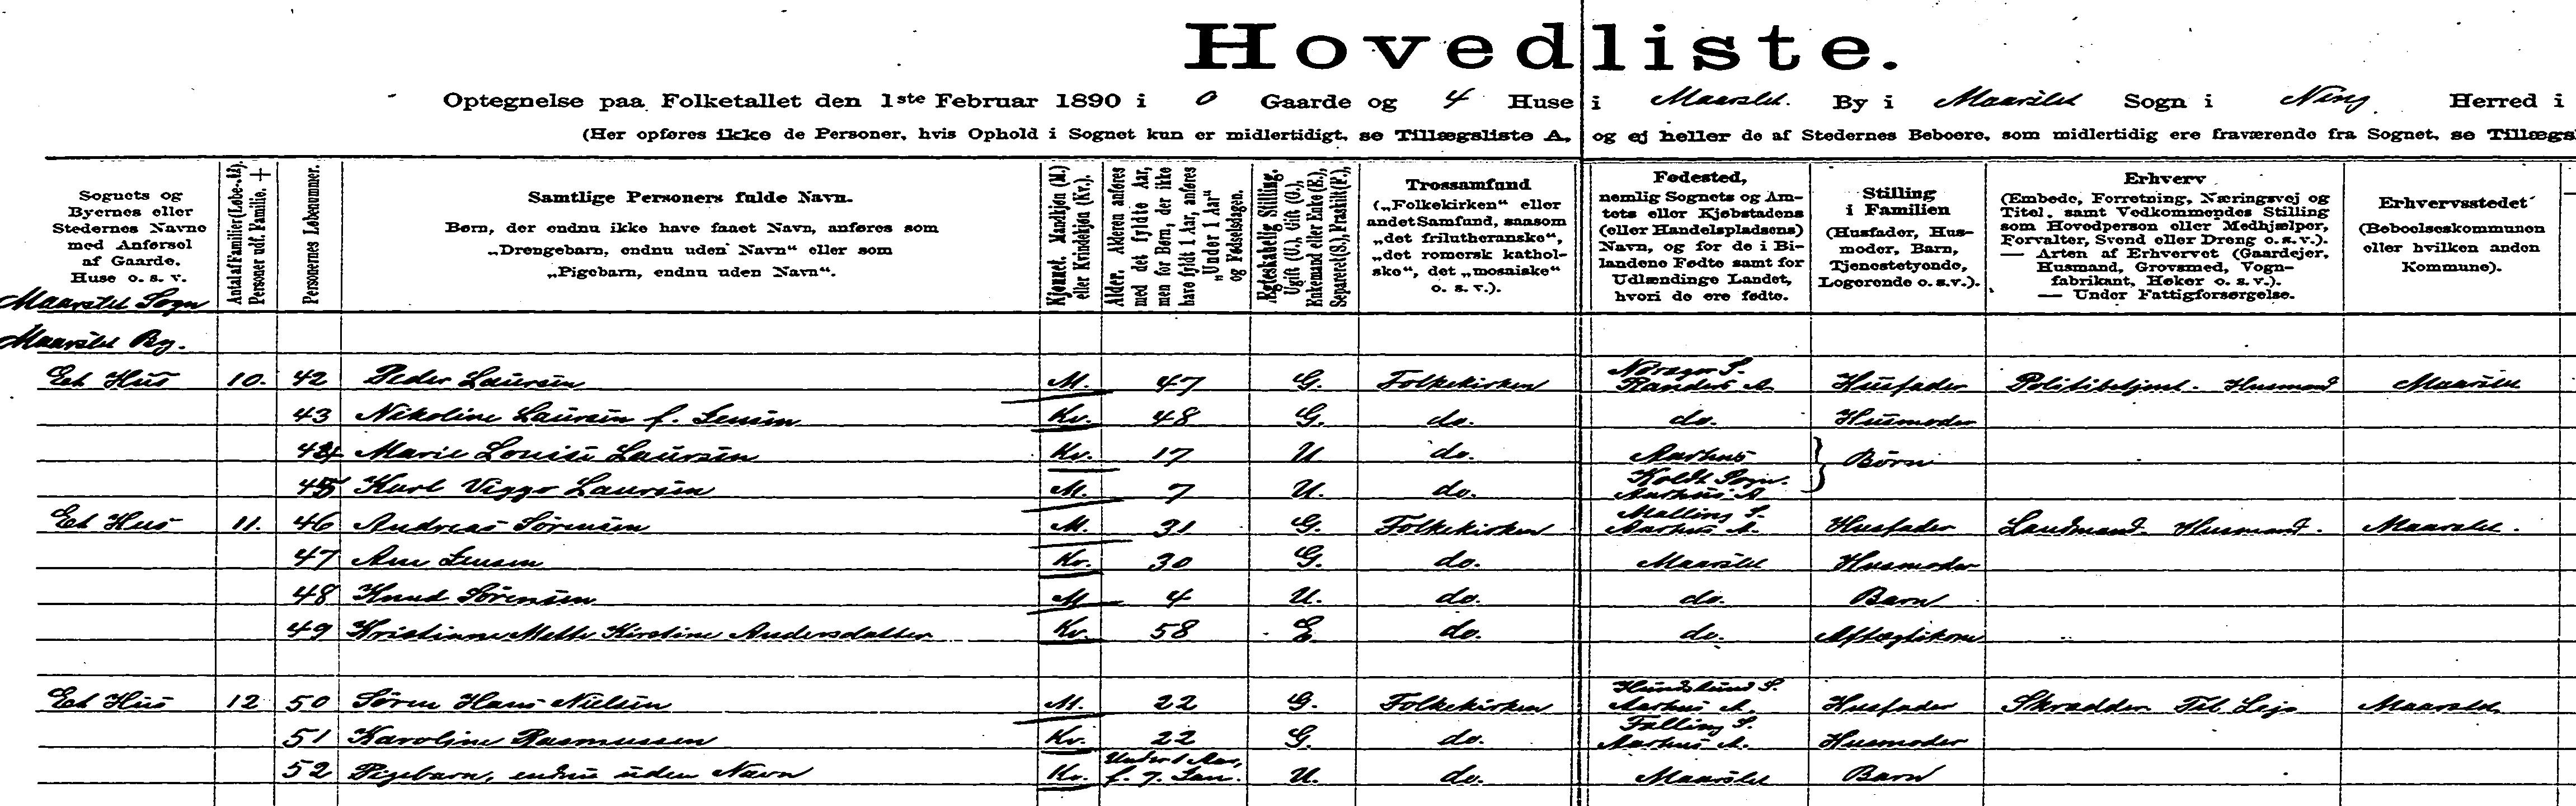 Hovedliste.
Optegnelse paa Folketallet den 1ste Februar 1890 i 0 Gaarde og 4 Huse i Maarslet. By i Maarslet Sogn i Ning Herred i
(Her opføres ikke de Personer, hvis Ophold i Sognet kun er midlertidigt, se Tillægsliste A, og ej heller de af Stedernes Beboere, som midlertidig ere fraværende fra Sognet, se Tillægsl
Sognets og
Byernes eller
Stedernes Navne
med Anførsel
af Gaarde,
Huse o. s. v.
Antal af Familier (Løbe-№).
Personer udf. Familie. +
Personernes Løbenummer.
Samtlige Personers fulde Navn.
Børn, der endnu ikke have faaet Navn, anføres som
„Drengebarn, endnu uden Navn“ eller som
„Pigebarn, endnu uden Navn“.
Kjønnet. Mandkjøn (M.)
eller Kvindekjøn (Kv.).
Alder. Alderen anføres
med det fyldte Aar,
men for Børn, der ikke
have fyldt 1 Aar, anføres
„Under 1 Aar“
og Fødselsdagen.
Ægteskabelig Stilling.
Ugift (U.), Gift (G.),
Enkemand eller Enke (E.),
Separeret (S.), Fraskilt (F.).
Trossamfund
(„Folkekirken“ eller
andet Samfund, saasom
„det frilutheranske“,
„det romersk kathol-
ske“, det „mosaiske“
o. s. v.).
Fødested,
nemlig Sognets og Am-
tets eller Kjøbstadens
(eller Handelspladsens)
Navn, og for de i Bi-
landene Fødte samt for
Udlændinge Landet,
hvori de ere fødte.
Stilling
i Familien
(Husfader, Hus-
moder, Barn,
Tjenestetyende,
Logerende o.s.v.).
Erhverv
(Embede, Forretning, Næringsvej og
Titel, samt Vedkommendes Stilling
som Hovedperson eller Medhjælper,
Forvalter, Svend eller Dreng o.s.v.).
— Arten af Erhvervet (Gaardejer,
Husmand, Grovsmed, Vogn-
fabrikant, Høker o. s. v.).
— Under Fattigforsørgelse.
Erhvervsstedet
(Beboelseskommunen
eller hvilken anden
Kommune).
Maarslet Sogn
Maarslet By.
Et Hus 10. 42 Peder Laursen M. 47 G. Folkekirken Nørager S. Randers A. Husfader Politibetjent. Husmand Maarslet
43 Nikoline Laursen f. Jensen Kv. 48 G. do. do. Husmoder
44 Marie Louise Laursen Kv. 17 U do. Aarhus } Børn
45 Karl Viggo Laursen M. 7 U. do. Koldt Sogn. Aarhus A
Et Hus 11. 46 Andreas Sørensen M. 31 G. Folkekirken Malling S. Aarhus A. Husfader Landmand. Husmand. Maarslet.
47 Ane Jensen Kv. 30 G. do. Maarslet Husmoder
48 Knud Sørensen M 4 U. do. do. Barn
49 Kristinne Mette Kirstine Andersdatter Kv. 58 E. do. do. Aftægtskone
Et Hus 12 50 Søren Hans Nielsen M. 22 G. Folkekirken Hundslund S. Aarhus A. Husfader Skrædder Til Leje Maarslet
51 Karoline Rasmussen Kv. 22 G. do. Falling S. Aarhus A. Husmoder
52 Pigebarn, endnu uden Navn Kv. Under 1 Aar, f. 7. Jan. U. do. Maarslet Barn